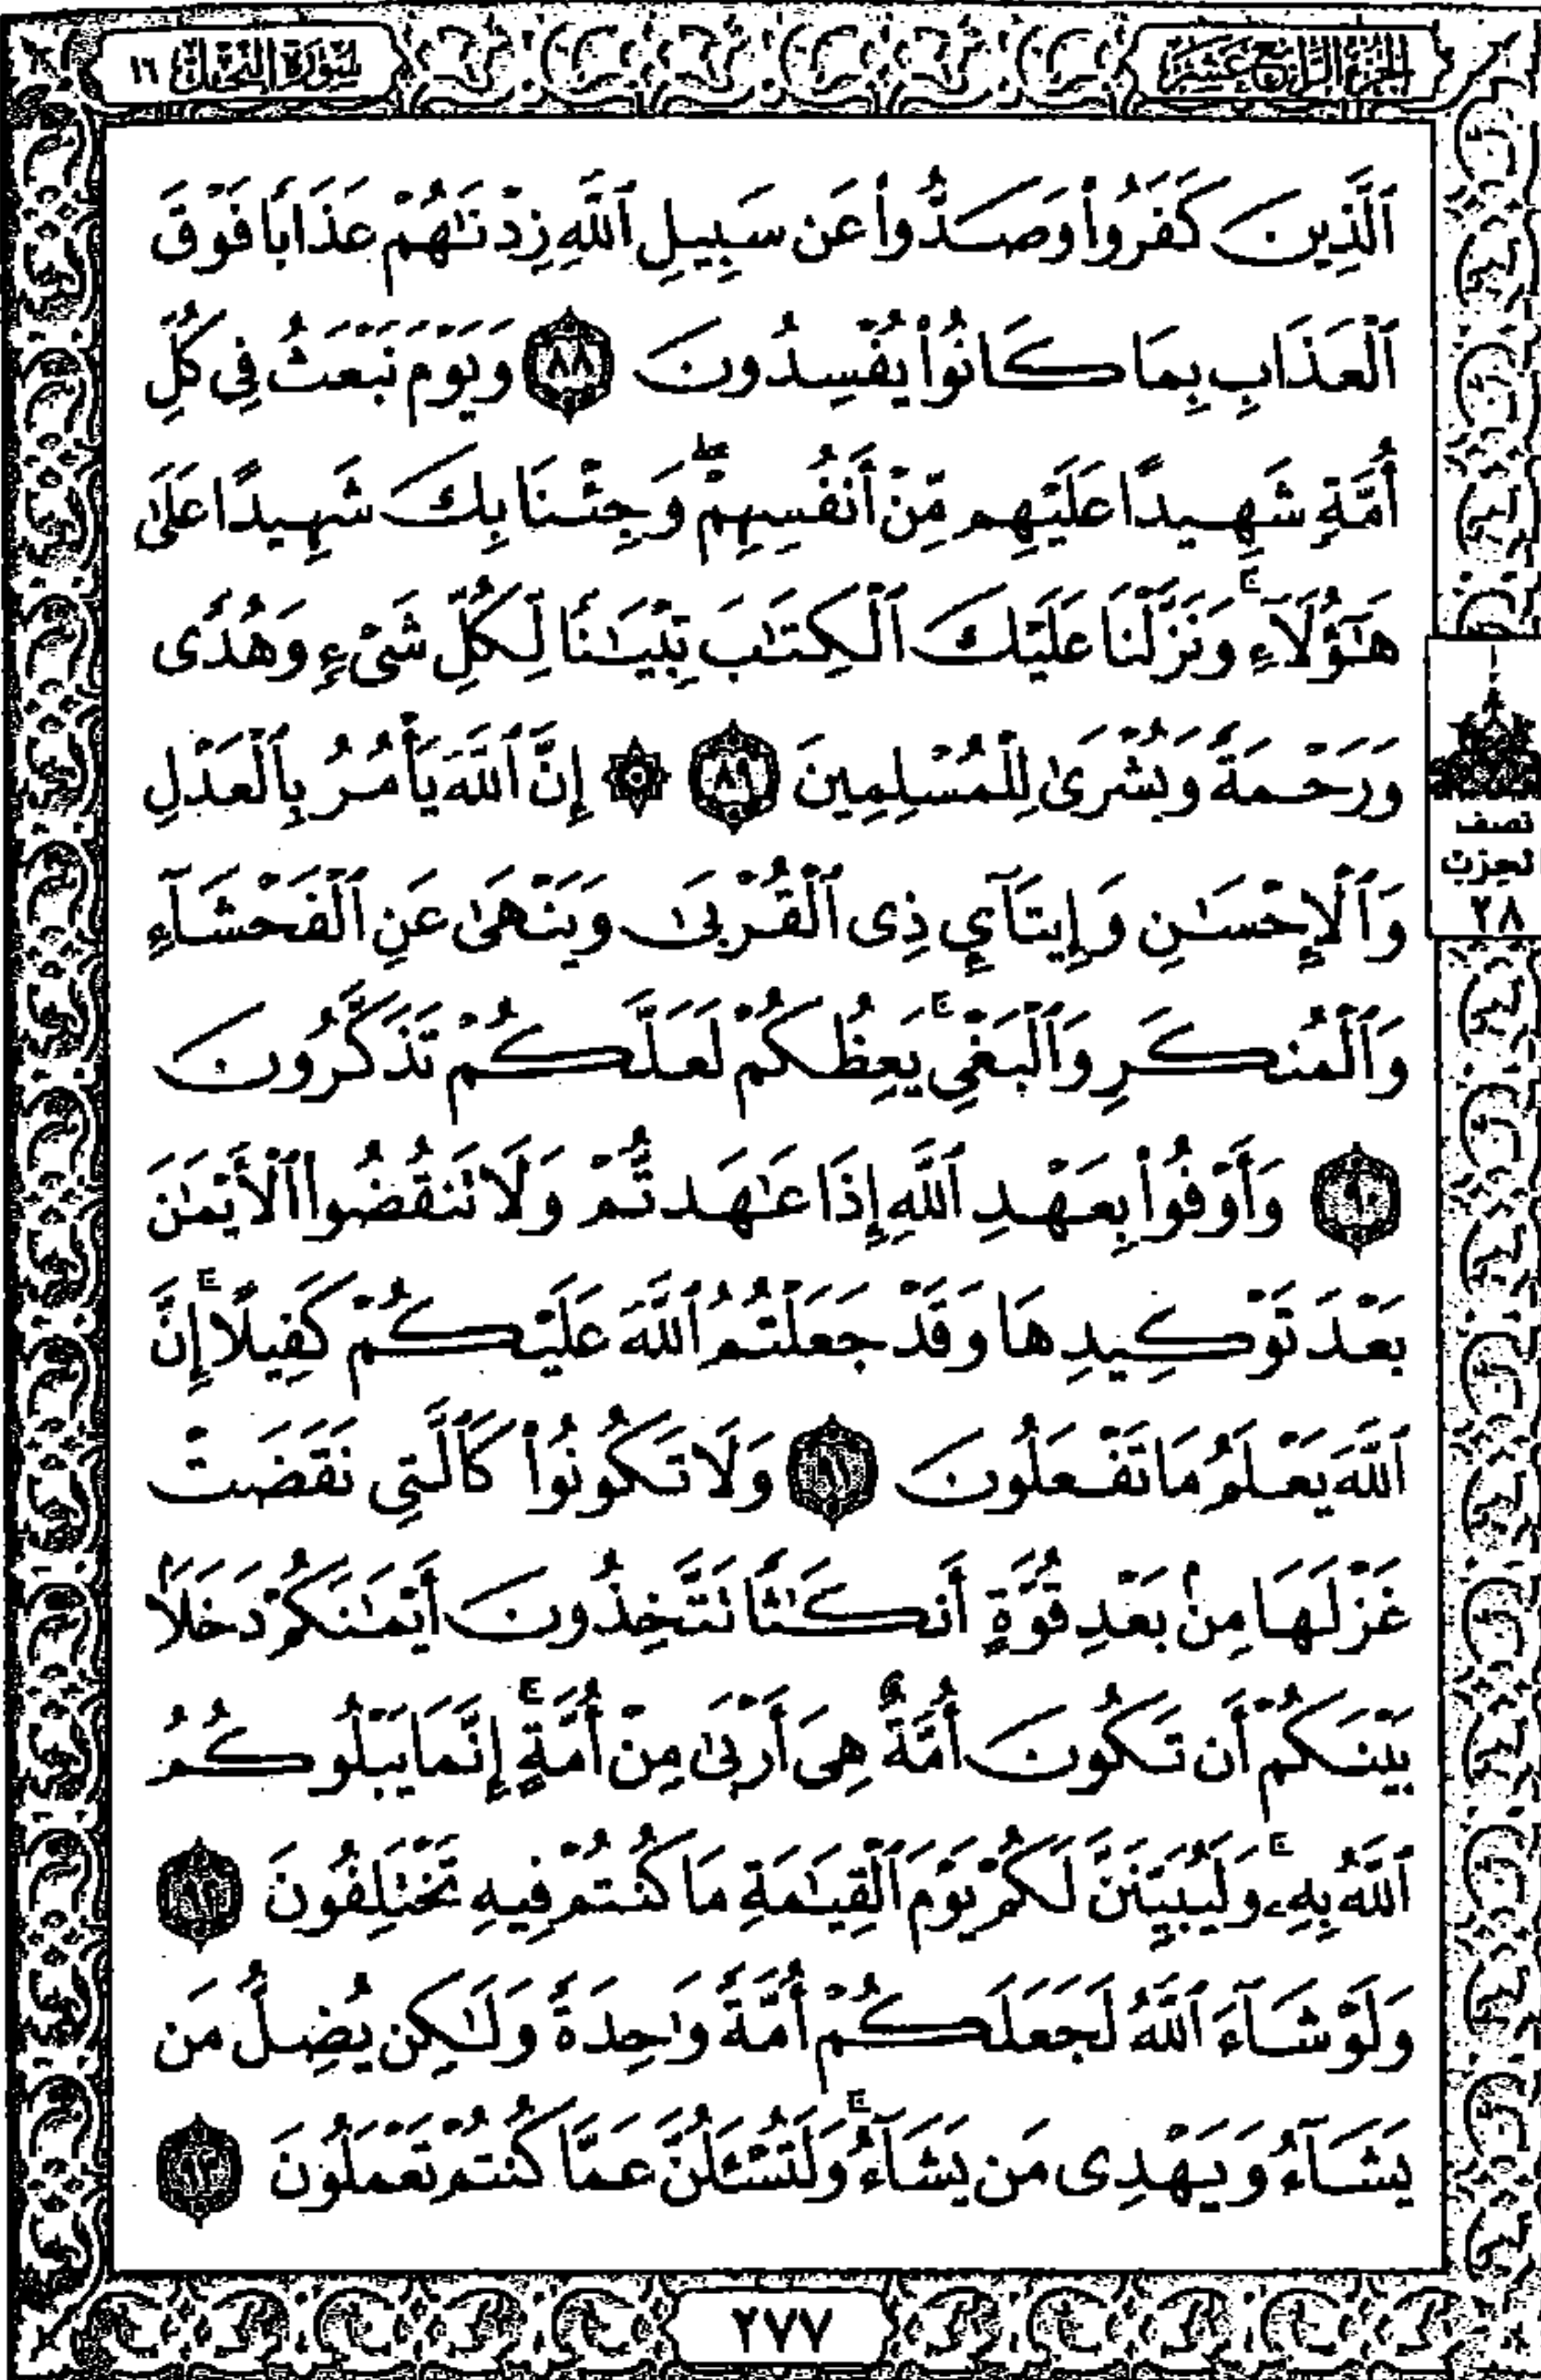 الجزء الرابع عشر
سورة النحل ١٦
ٱلَّذِينَ كَفَرُوا۟ وَصَدُّوا۟ عَن سَبِيلِ ٱللَّهِ زِدْنَٰهُمْ عَذَابًا فَوْقَ
ٱلْعَذَابِ بِمَا كَانُوا۟ يُفْسِدُونَ ٨٨ وَيَوْمَ نَبْعَثُ فِى كُلِّ
أُمَّةٍ شَهِيدًا عَلَيْهِم مِّنْ أَنفُسِهِمْ ۖ وَجِئْنَا بِكَ شَهِيدًا عَلَىٰ
هَٰٓؤُلَآءِ ۚ وَنَزَّلْنَا عَلَيْكَ ٱلْكِتَٰبَ تِبْيَٰنًا لِّكُلِّ شَىْءٍ وَهُدًى
وَرَحْمَةً وَبُشْرَىٰ لِلْمُسْلِمِينَ ٨٩ ۞ إِنَّ ٱللَّهَ يَأْمُرُ بِٱلْعَدْلِ
نصف
الحزب
٢٨
وَٱلْإِحْسَٰنِ وَإِيتَآئِ ذِى ٱلْقُرْبَىٰ وَيَنْهَىٰ عَنِ ٱلْفَحْشَآءِ
وَٱلْمُنكَرِ وَٱلْبَغْىِ ۚ يَعِظُكُمْ لَعَلَّكُمْ تَذَكَّرُونَ
٩٠ وَأَوْفُوا۟ بِعَهْدِ ٱللَّهِ إِذَا عَٰهَدتُّمْ وَلَا تَنقُضُوا۟ ٱلْأَيْمَٰنَ
بَعْدَ تَوْكِيدِهَا وَقَدْ جَعَلْتُمُ ٱللَّهَ عَلَيْكُمْ كَفِيلًا ۚ إِنَّ
ٱللَّهَ يَعْلَمُ مَا تَفْعَلُونَ ٩١ وَلَا تَكُونُوا۟ كَٱلَّتِى نَقَضَتْ
غَزْلَهَا مِنۢ بَعْدِ قُوَّةٍ أَنكَٰثًا تَتَّخِذُونَ أَيْمَٰنَكُمْ دَخَلًۢا
بَيْنَكُمْ أَن تَكُونَ أُمَّةٌ هِىَ أَرْبَىٰ مِنْ أُمَّةٍ ۚ إِنَّمَا يَبْلُوكُمُ
ٱللَّهُ بِهِۦ ۚ وَلَيُبَيِّنَنَّ لَكُمْ يَوْمَ ٱلْقِيَٰمَةِ مَا كُنتُمْ فِيهِ تَخْتَلِفُونَ ٩٢
وَلَوْ شَآءَ ٱللَّهُ لَجَعَلَكُمْ أُمَّةً وَٰحِدَةً وَلَٰكِن يُضِلُّ مَن
يَشَآءُ وَيَهْدِى مَن يَشَآءُ ۚ وَلَتُسْـَٔلُنَّ عَمَّا كُنتُمْ تَعْمَلُونَ ٩٣
٢٧٧